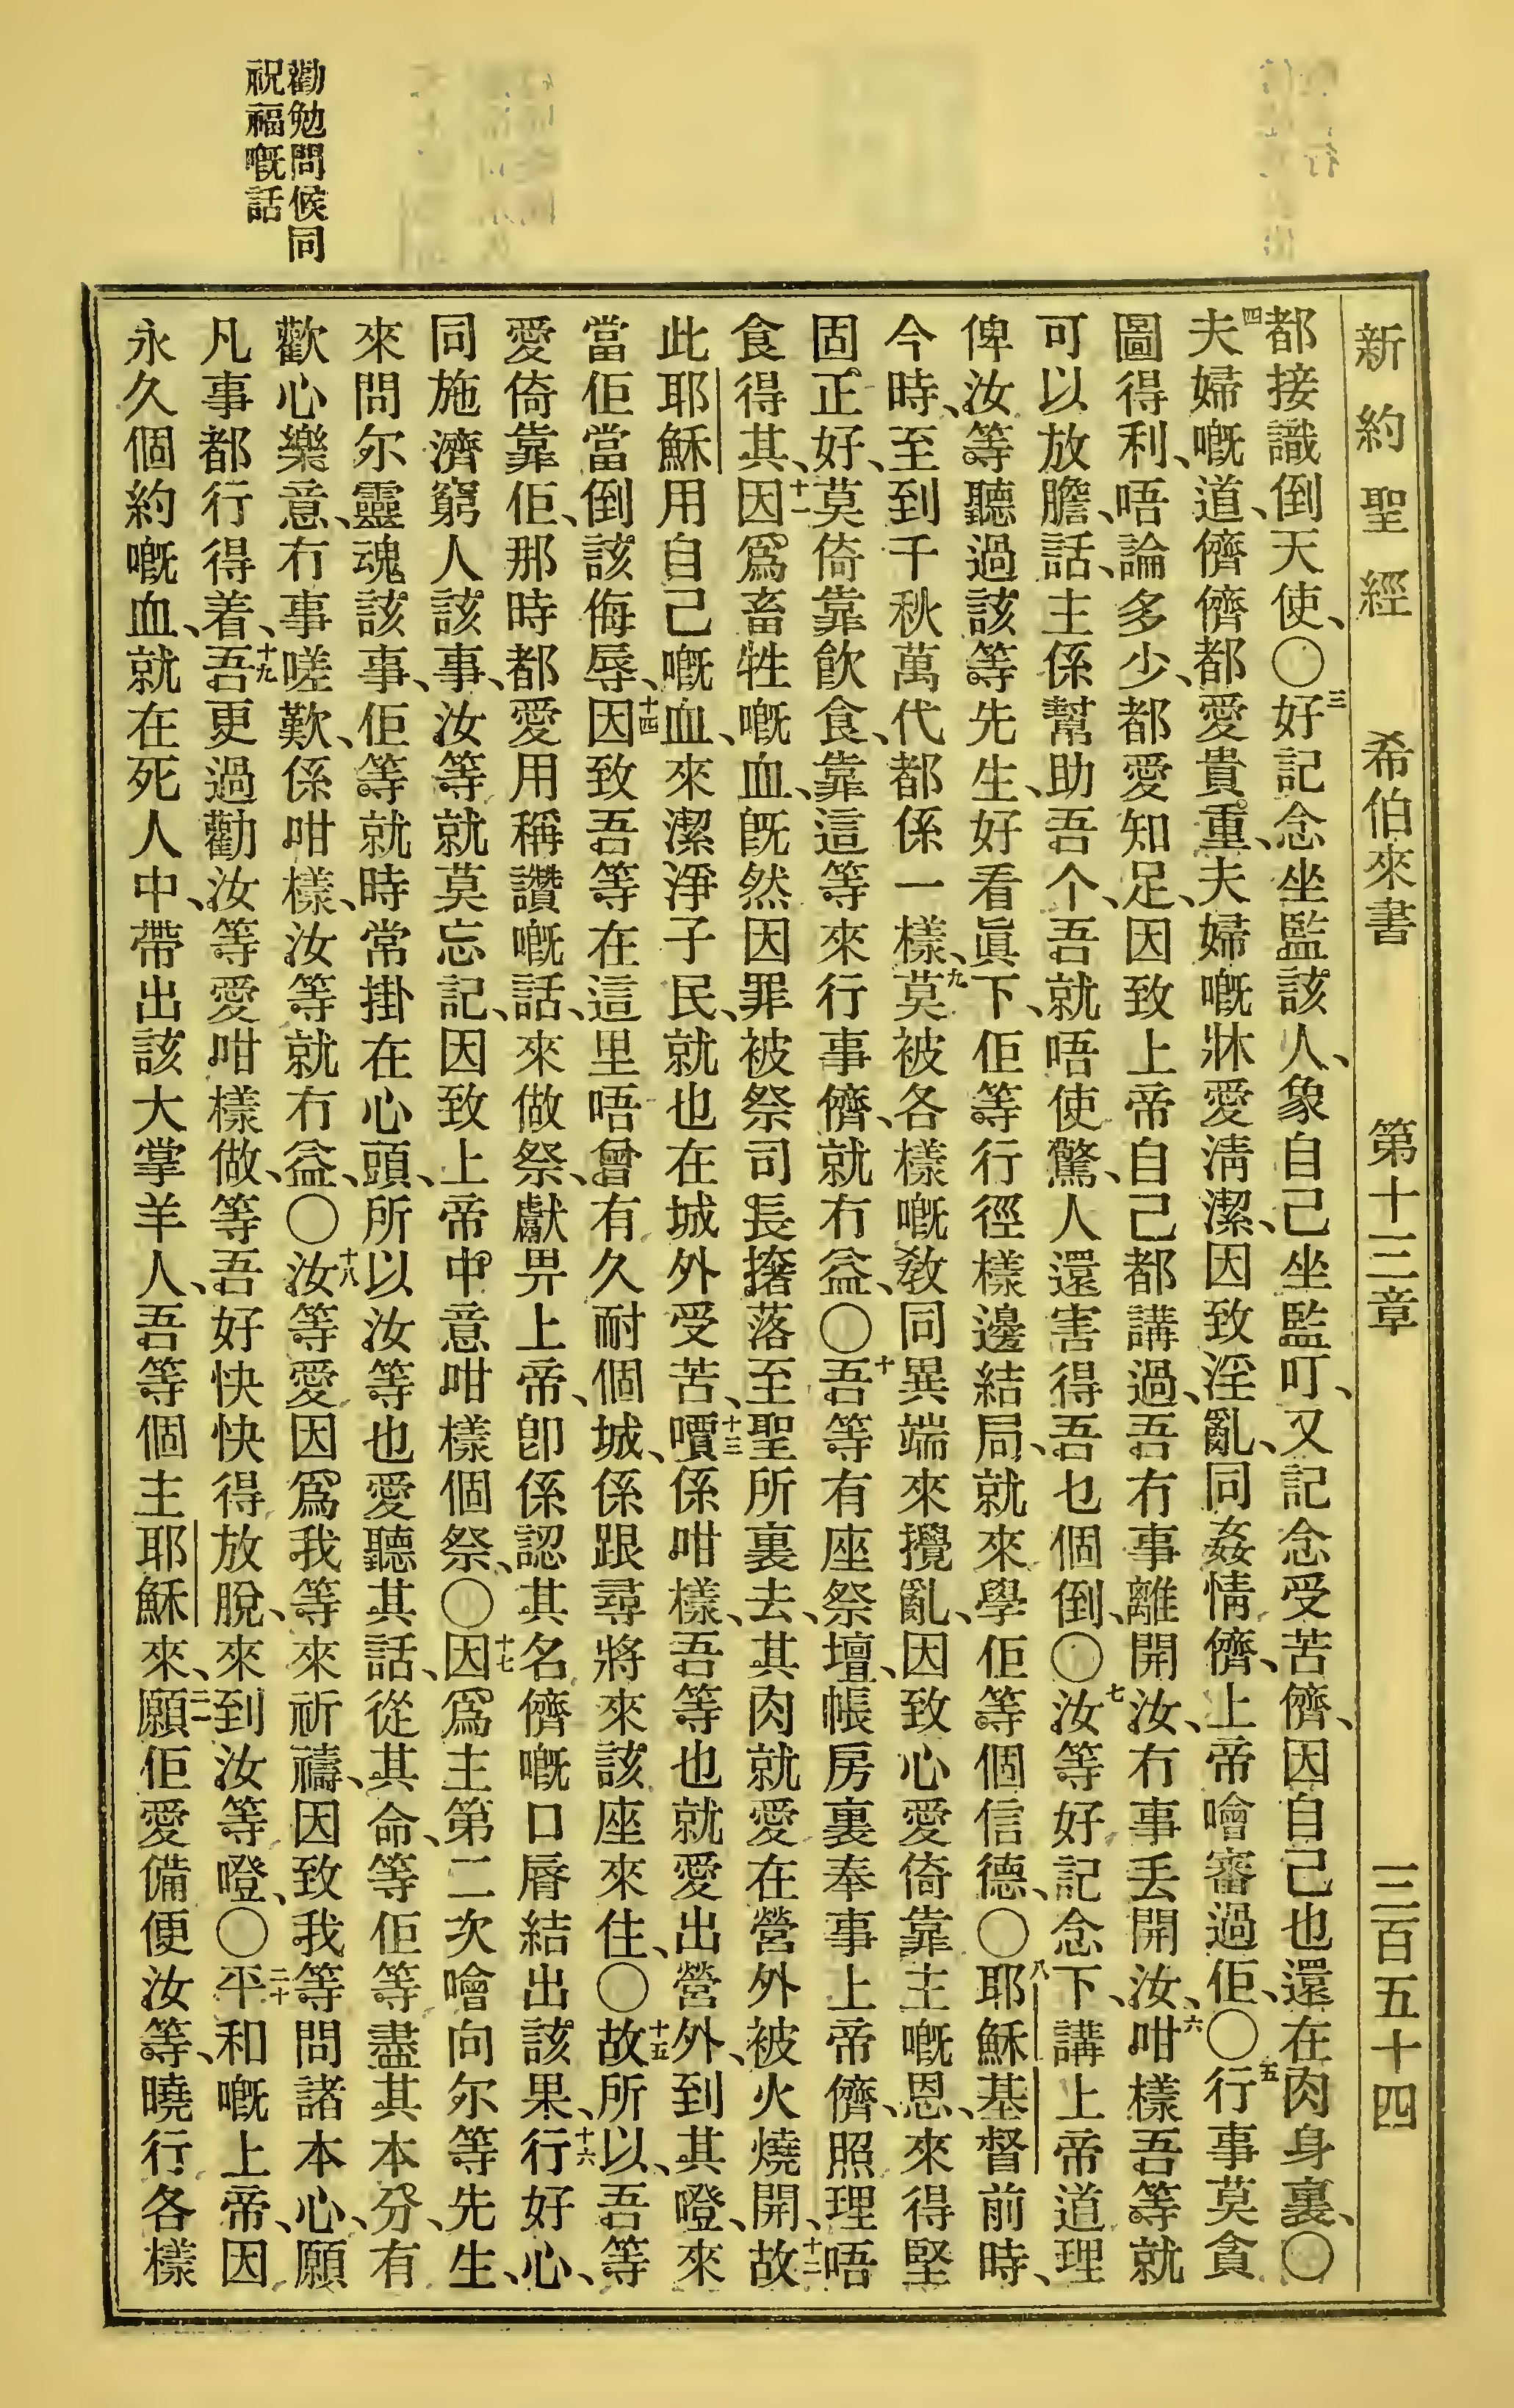 新約聖經 希伯來書 第十三章 三百五十四
都接識倒天使、〇三好記念坐監該人、象自己坐監叮、又記念受苦儕、因自己也還在肉身裏、〇
四夫婦嘅道、儕儕都愛貴重、夫婦嘅牀愛淸潔、因致淫亂、同姦情儕、上帝噲審過佢、〇五行事莫貪
圖得利、唔論多少、都愛知足、因致上帝自己都講過、吾冇事離開汝、冇事丢開汝、六咁樣吾等就
可以放膽、話、主係幫助吾个、吾就唔使驚、人還害得吾乜個倒、〇七汝等好記念下、講上帝道理
俾汝等聽過該等先生、好看眞下、佢等行徑樣邊結局、就來學佢等個信德、〇八耶穌基督前時、
今時、至到千秋萬代都係一樣、九莫被各樣嘅敎同異端來攪亂、因致心愛倚靠主嘅恩、來得堅
固正好、莫倚靠飮食、靠這等來行事儕、就冇益、〇十吾等有座祭壇、帳房裏奉事上帝儕、照理唔
食得其、十一因爲畜牲嘅血、旣然因罪被祭司長撦落至聖所裏去、其肉就愛在營外被火燒開、十二故
此耶穌用自己嘅血、來潔淨子民、就也在城外受苦、十三嚽係咁樣、吾等也就愛出營外、到其噔、來
當佢當倒該侮辱、十四因致吾等在這里唔曾有久耐個城、係跟尋將來該座來住、〇十五故所以、吾等
愛倚靠佢、那時都愛用稱讚嘅話、來做祭、獻畀上帝、卽係認其名儕嘅口脣結出該果、十六行好心、
同施濟窮人該事、汝等就莫忘記、因致上帝中意咁樣個祭、〇十七因爲主第二次噲向尔等先生、
來問尔靈魂該事、佢等就時常掛在心頭、所以汝等也愛聽其話、從其命、等佢等盡其本分、有
歡心樂意、冇事嗟歎、係咁樣、汝等就冇益、〇十八汝等愛因爲我等來祈禱、因致我等問諸本心、願
凡事都行得着、十九吾更過勸汝等愛咁樣做、等吾好快快得放脫、來到汝等噔、〇二十平和嘅上帝、因
永久個約嘅血、就在死人中、帶出該大掌羊人、吾等個主耶穌來、二一願佢愛備便汝等、曉行各樣
勸勉問候同
祝福嘅話